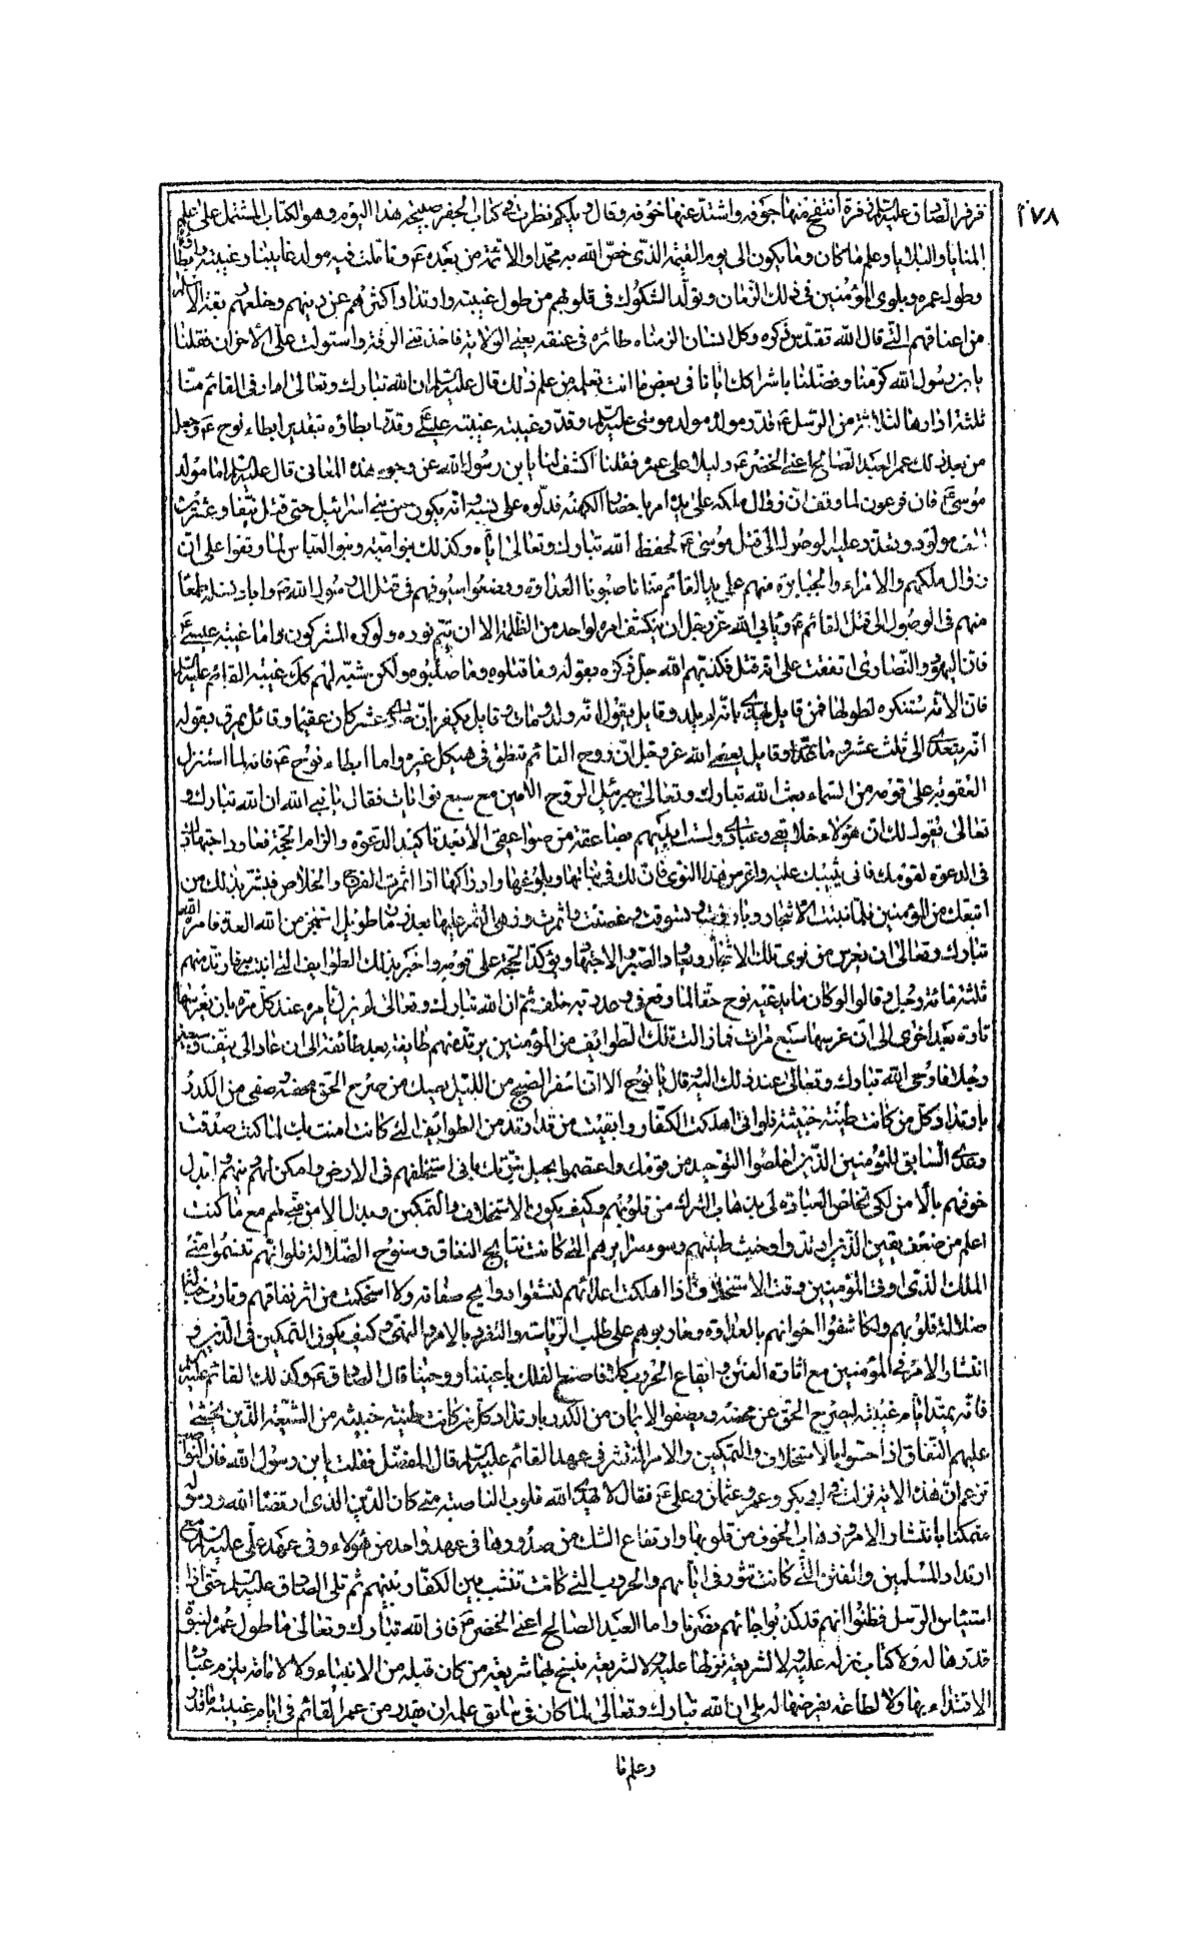 ٢٧٨
فزفر الصادق عليه السلم زفرة انتفخ منها جوفه واشتد عنها خوفه وقال ويلكم نظرت في كتاب الجفر صبيحة هذا اليوم وهو الكتاب المشتمل على علم
المنايا والبلايا وعلم ما كان وما يكون الى يوم القيمة الذي خص الله به محمدا والائمة من بعده ع وتاملت فيه مولد غايبنا وغيبته وابطاؤه
وطول عمره وبلوى المؤمنين في ذلك الزمان وتولد الشكوك في قلوبهم من طول غيبته وارتداد اكثرهم عن دينهم وخلعهم ربقة الاسلام
من اعناقهم التي قال الله تقدس ذكره وكل انسان الزمناه طائره في عنقه يعني الولاية فاخذتني الرقة واستولت علي الاحزان فقلنا
يا بن رسول الله كرمنا وفضلنا باشراكك ايانا في بعض ما انت تعلمه من علم ذلك قال عليه السلم ان الله تبارك وتعالى ادار في القائم منا
ثلثة ادارها لثلاثة من الرسل ع قدر مولده مولد موسى عليه السلم وقدر غيبته غيبة عيسى ع وقدر ابطاؤه بتقدير ابطاء نوح ع وجعل
من بعد ذلك عمر العبد الصالح اعني الخضر ع دليلا على عمره فقلنا اكشف لنا يا بن رسول الله عن وجوه هذه المعاني قال عليه السلم اما مولد
موسى ع فان فرعون لما وقف ان زوال ملكه على يده امر باحضار الكهنة فدلوه على نسبه وانه يكون من بني اسرائيل حتى قتل نيفا وعشرين
الف مولود وتعذر عليه الوصول الى قتل موسى ع لحفظ الله تبارك وتعالى اياه وكذلك بنو امية وبنو العباس لما وقفوا على ان
زوال ملكهم والامراء والجبابرة منهم على يد القائم منا ناصبونا العداوة ووضعوا سيوفهم في قتل ال رسول الله ص وابادة نسله طمعا
منهم في الوصول الى قتل القائم ع ويابى الله عز وجل ان يكشف امره لواحد من الظلمة الا ان يتم نوره ولو كره المشركون واما غيبة عيسى ع
فان اليهود والنصارى اتفقت على انه قتل فكذبهم الله جل ذكره بقوله وما قتلوه وما صلبوه ولكن شبه لهم كذلك غيبة القائم عليه السلم
فان الامة ستنكره لطولها فمن قايل بانه لم يلد وقايل يقول انه ولد ومات وقايل يكفر بان حادي عشر كان عقيما وقائل يمرق بقوله
انه يتعدى الى ثلث عشر وما عدا وقايل يعصي الله عز وجل ان روح القائم تنطق في هيكل غيره واما ابطاء نوح ع فانه لما استنزل
العقوبة على قومه من السماء بعث الله تبارك وتعالى جبرئيل الروح الامين مع سبع نوايات فقال يا نبي الله ان الله تبارك و
تعالى يقول لك ان هؤلاء خلايقي وعبادي ولست ابيدهم بصاعقة من صواعقي الا بعد تاكيد الدعوة والزام الحجة فعاود اجتهادك
في الدعوة لقومك فاني مثيبك عليه واغرس هذا النوى فان لك في نباتها وبلوغها وادراكها اذا اثمرت الفرج والخلاص فبشر بذلك من
اتبعك من المؤمنين فلما نبتت الاشجار وتازرت وتسوقت وتغصنت واثمرت وزهى الثمر عليها بعد زمان طويل استنجز من الله العدة فامره الله
تبارك وتعالى ان يغرس من نوى تلك الاشجار ويعاود الصبر والاجتهاد ويؤكد الحجة على قومه واخبر بذلك الطوايف التي امنت به فارتد منهم
ثلثة مائة رجل وقالوا لو كان ما يدعيه نوح حقا لما وقع في وعد ربه خلف ثم ان الله تبارك وتعالى لم يزل يامره عند كل مرة بان يغرسها
تارة بعد اخرى الى ان غرسها سبع مرات فما زالت تلك الطوايف من المؤمنين يرتد منهم طايفة بعد طائفة الى ان عاد الى نيف وسبعين
رجلا فاوحى الله تبارك وتعالى عند ذلك اليه وقال يا نوح الان اسفر الصبح من الليل بعينك حين صرح الحق محضه وصفي من الكدر
بارتداد كل من كانت طينته خبيثة فلو اني اهلكت الكفار وابقيت من قد ارتد من الطوايف التي كانت امنت بك لما كنت صدقت
وعدي السابق للمؤمنين الذين اخلصوا التوحيد من قومك واعتصموا بحبل نبوتك باني استخلفهم في الارض وامكن لهم دينهم وابدل
خوفهم بالامن لكي تخلص العبادة لي بذهاب الشرك من قلوبهم وكيف يكون الاستخلاف والتمكين وبدل الامن مني لهم مع ما كنت
اعلم من ضعف يقين الذين ارتدوا وخبث طينتهم وسوء سرايرهم التي كانت نتايج النفاق وسنوح الضلالة فلو انهم تنسموا مني
الملك الذي اوتي المؤمنين وقت الاستخلاف اذا اهلكت اعدائهم لنشقوا روايح صفاته ولاستحكمت سرائر نفاقهم وتابدت حبال
ضلالة قلوبهم ولكاشفوا اخوانهم بالعداوة وحاربوهم على طلب الرياسة والتفرد بالامر والنهي وكيف يكون التمكين في الدين و
انتشار الامر في المؤمنين مع اثارة الفتن وايقاع الحروب كلا فاصنع الفلك باعيننا ووحينا قال الصادق ع وكذلك القائم عليه السلم
فانه يمتد ايام غيبته ليصرح الحق عن محضه ويصفو الايمان من الكدر بارتداد كل من كانت طينته خبيثة من الشيعة الذين يخشى
عليهم النفاق اذا احسوا بالاستخلاف والتمكين والامر المنتشر في عهد القائم عليه السلم قال المفضل فقلت يا بن رسول الله فان النواصب
تزعم ان هذه الاية نزلت في ابي بكر وعمر وعثمان وعلي ع فقال لا يهدي الله قلوب الناصبة متى كان الدين الذي ارتضاه الله ورسوله
متمكنا بانتشار الامر وذهاب الخوف من قلوبها وارتفاع الشك من صدورها في عهد واحد من هؤلاء وفي عهد علي عليه السلم مع
ارتداد المسلمين والفتن التي كانت تثور في ايامهم والحروب التي كانت تنشب بين الكفار وبينهم ثم تلى الصادق عليه السلم حتى اذا
استيئس الرسل وظنوا انهم قد كذبوا جائهم نصرنا واما العبد الصالح اعني الخضر ع فان الله تبارك وتعالى ما طول عمره لنبوة
قدرها له ولا كتاب نزله عليه ولا لشريعة نزلها عليه ولا لشريعة ينسخ بها شريعة من كان قبله من الانبياء ولا لامامة يلزم عباده
الاقتداء بها ولا لطاعة يفرضها له بلى ان الله تبارك وتعالى لما كان في سابق علمه ان يقدر من عمر القائم في ايام غيبته ما قدر
وعلم ما